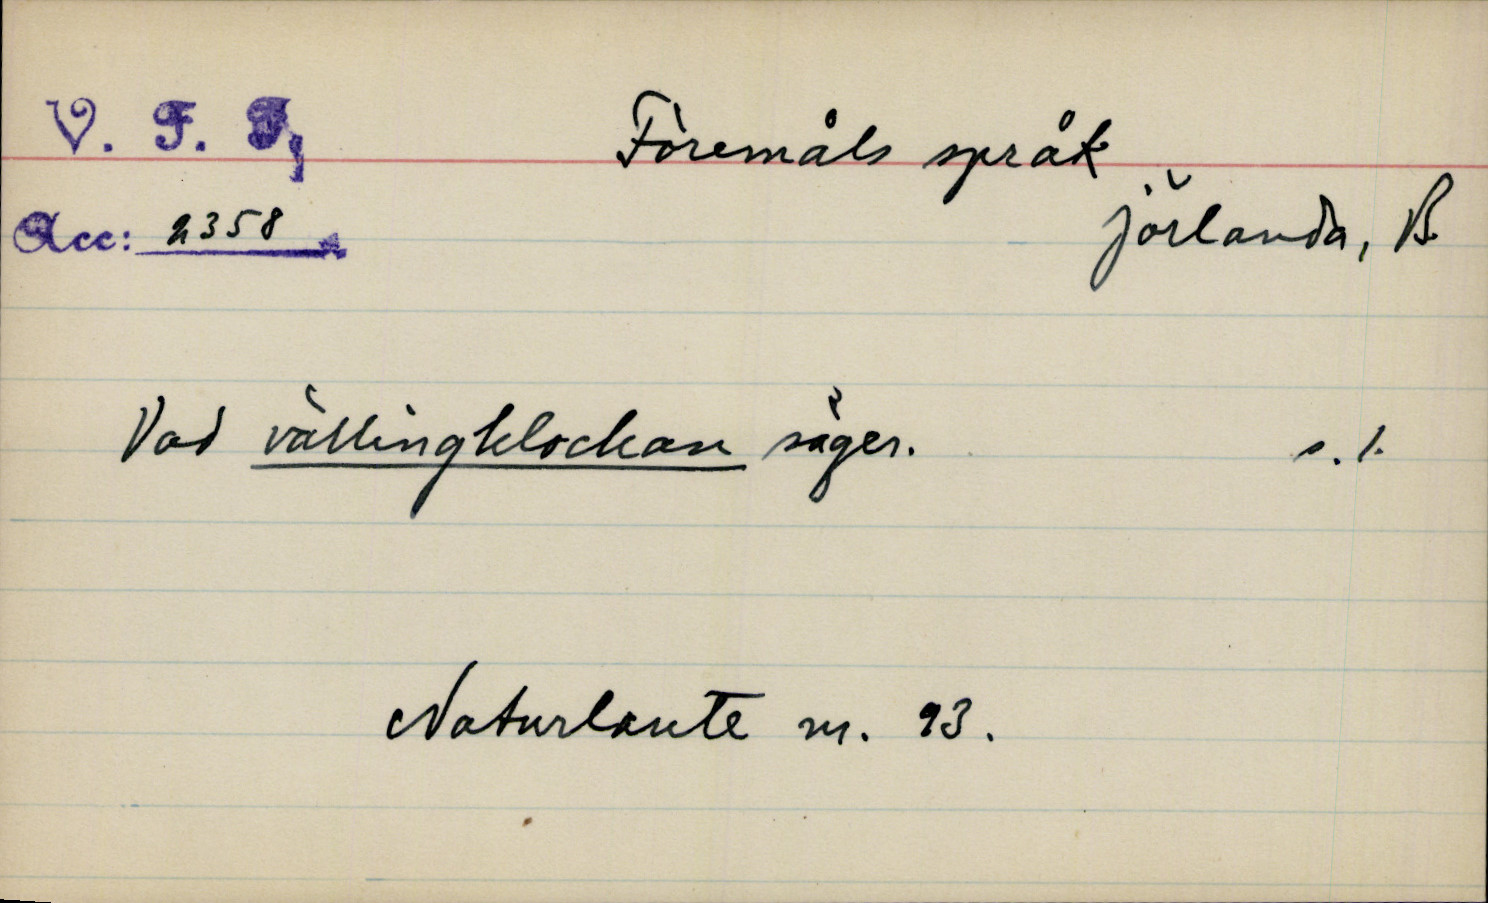 V. F. F.
Föremåls språk
Acc: 2358
Jörlanda, B.
Vad vällingklockan säger. s. 1.
Naturlaute nr. 93.